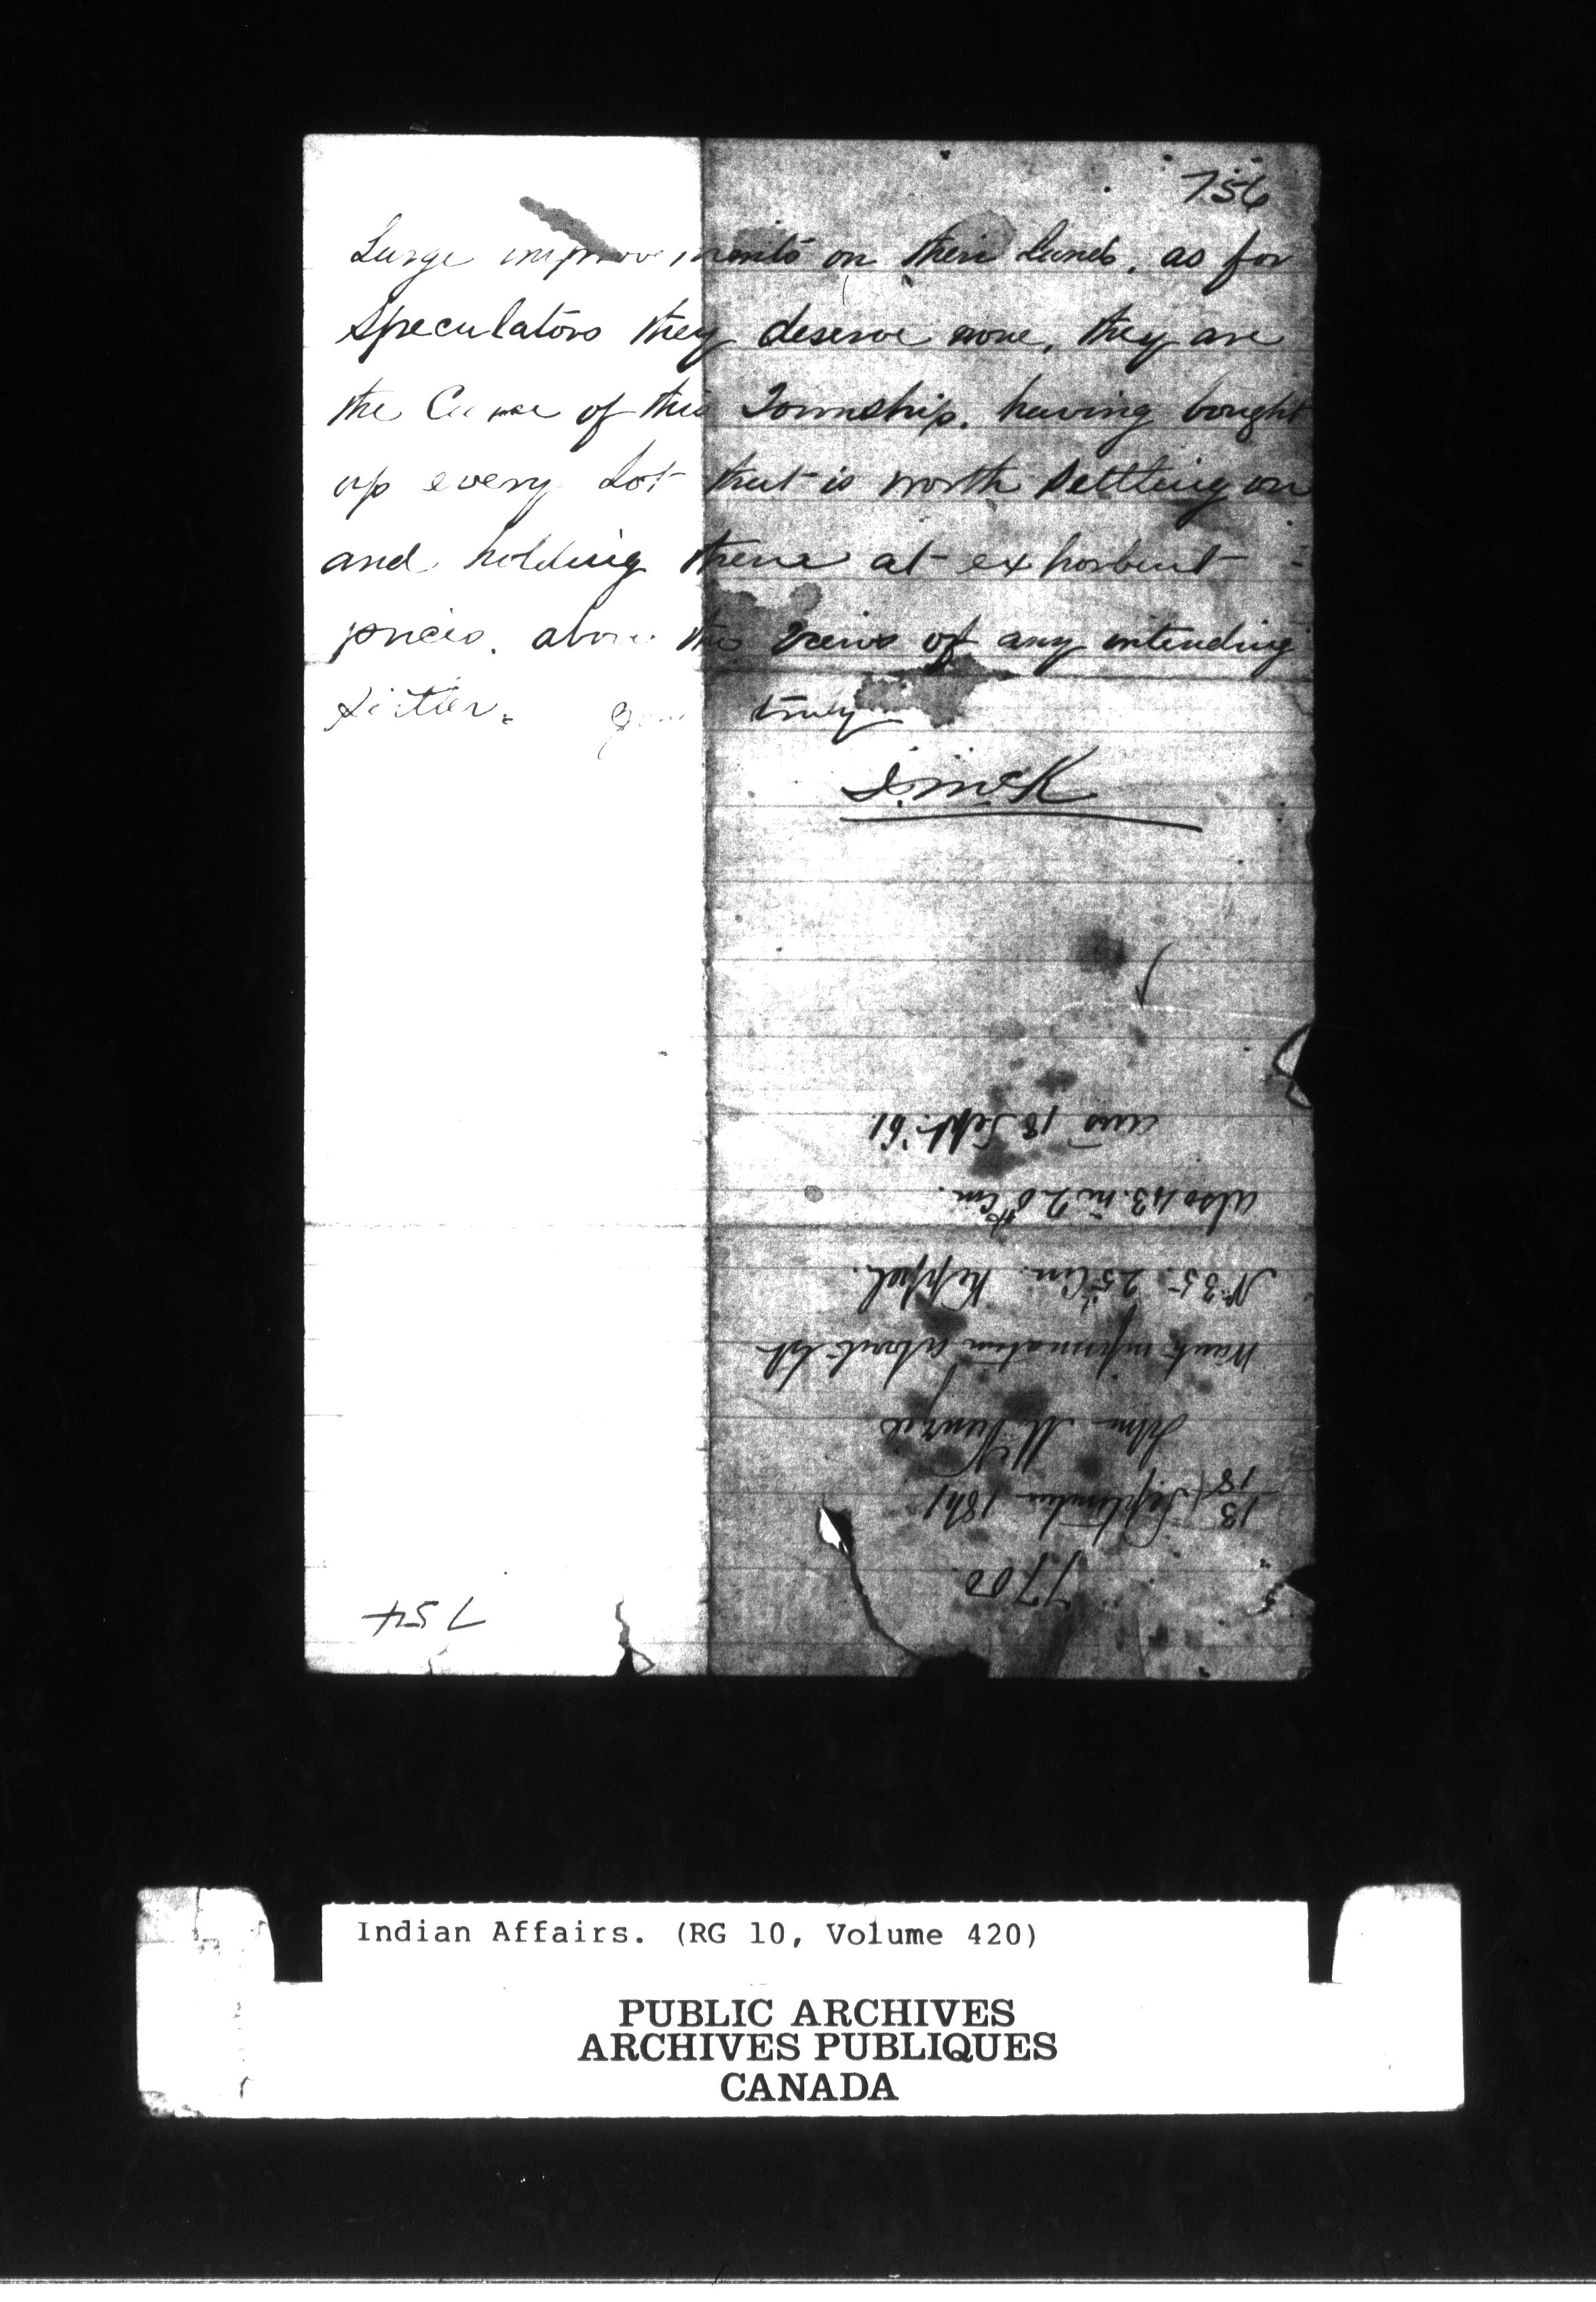 756
Large improvements on their Lands. as for
Speculators they deserve none, they are
the Curse of this Township. having bought
up every Lot that is worth Settling on
and holding them at exhorbent
prices. above the views of any intending
Settler. Yours truly
J. McK
7700
13/18 September 1861
John McKenzie
Wants information about lot
No 35. 25th Con. Keppel.
also 43. in 20th Con.
ans 18 Sept. '61.
754
Indian Affairs. (RG 10, Volume 420)
PUBLIC ARCHIVES
ARCHIVES PUBLIQUES
CANADA